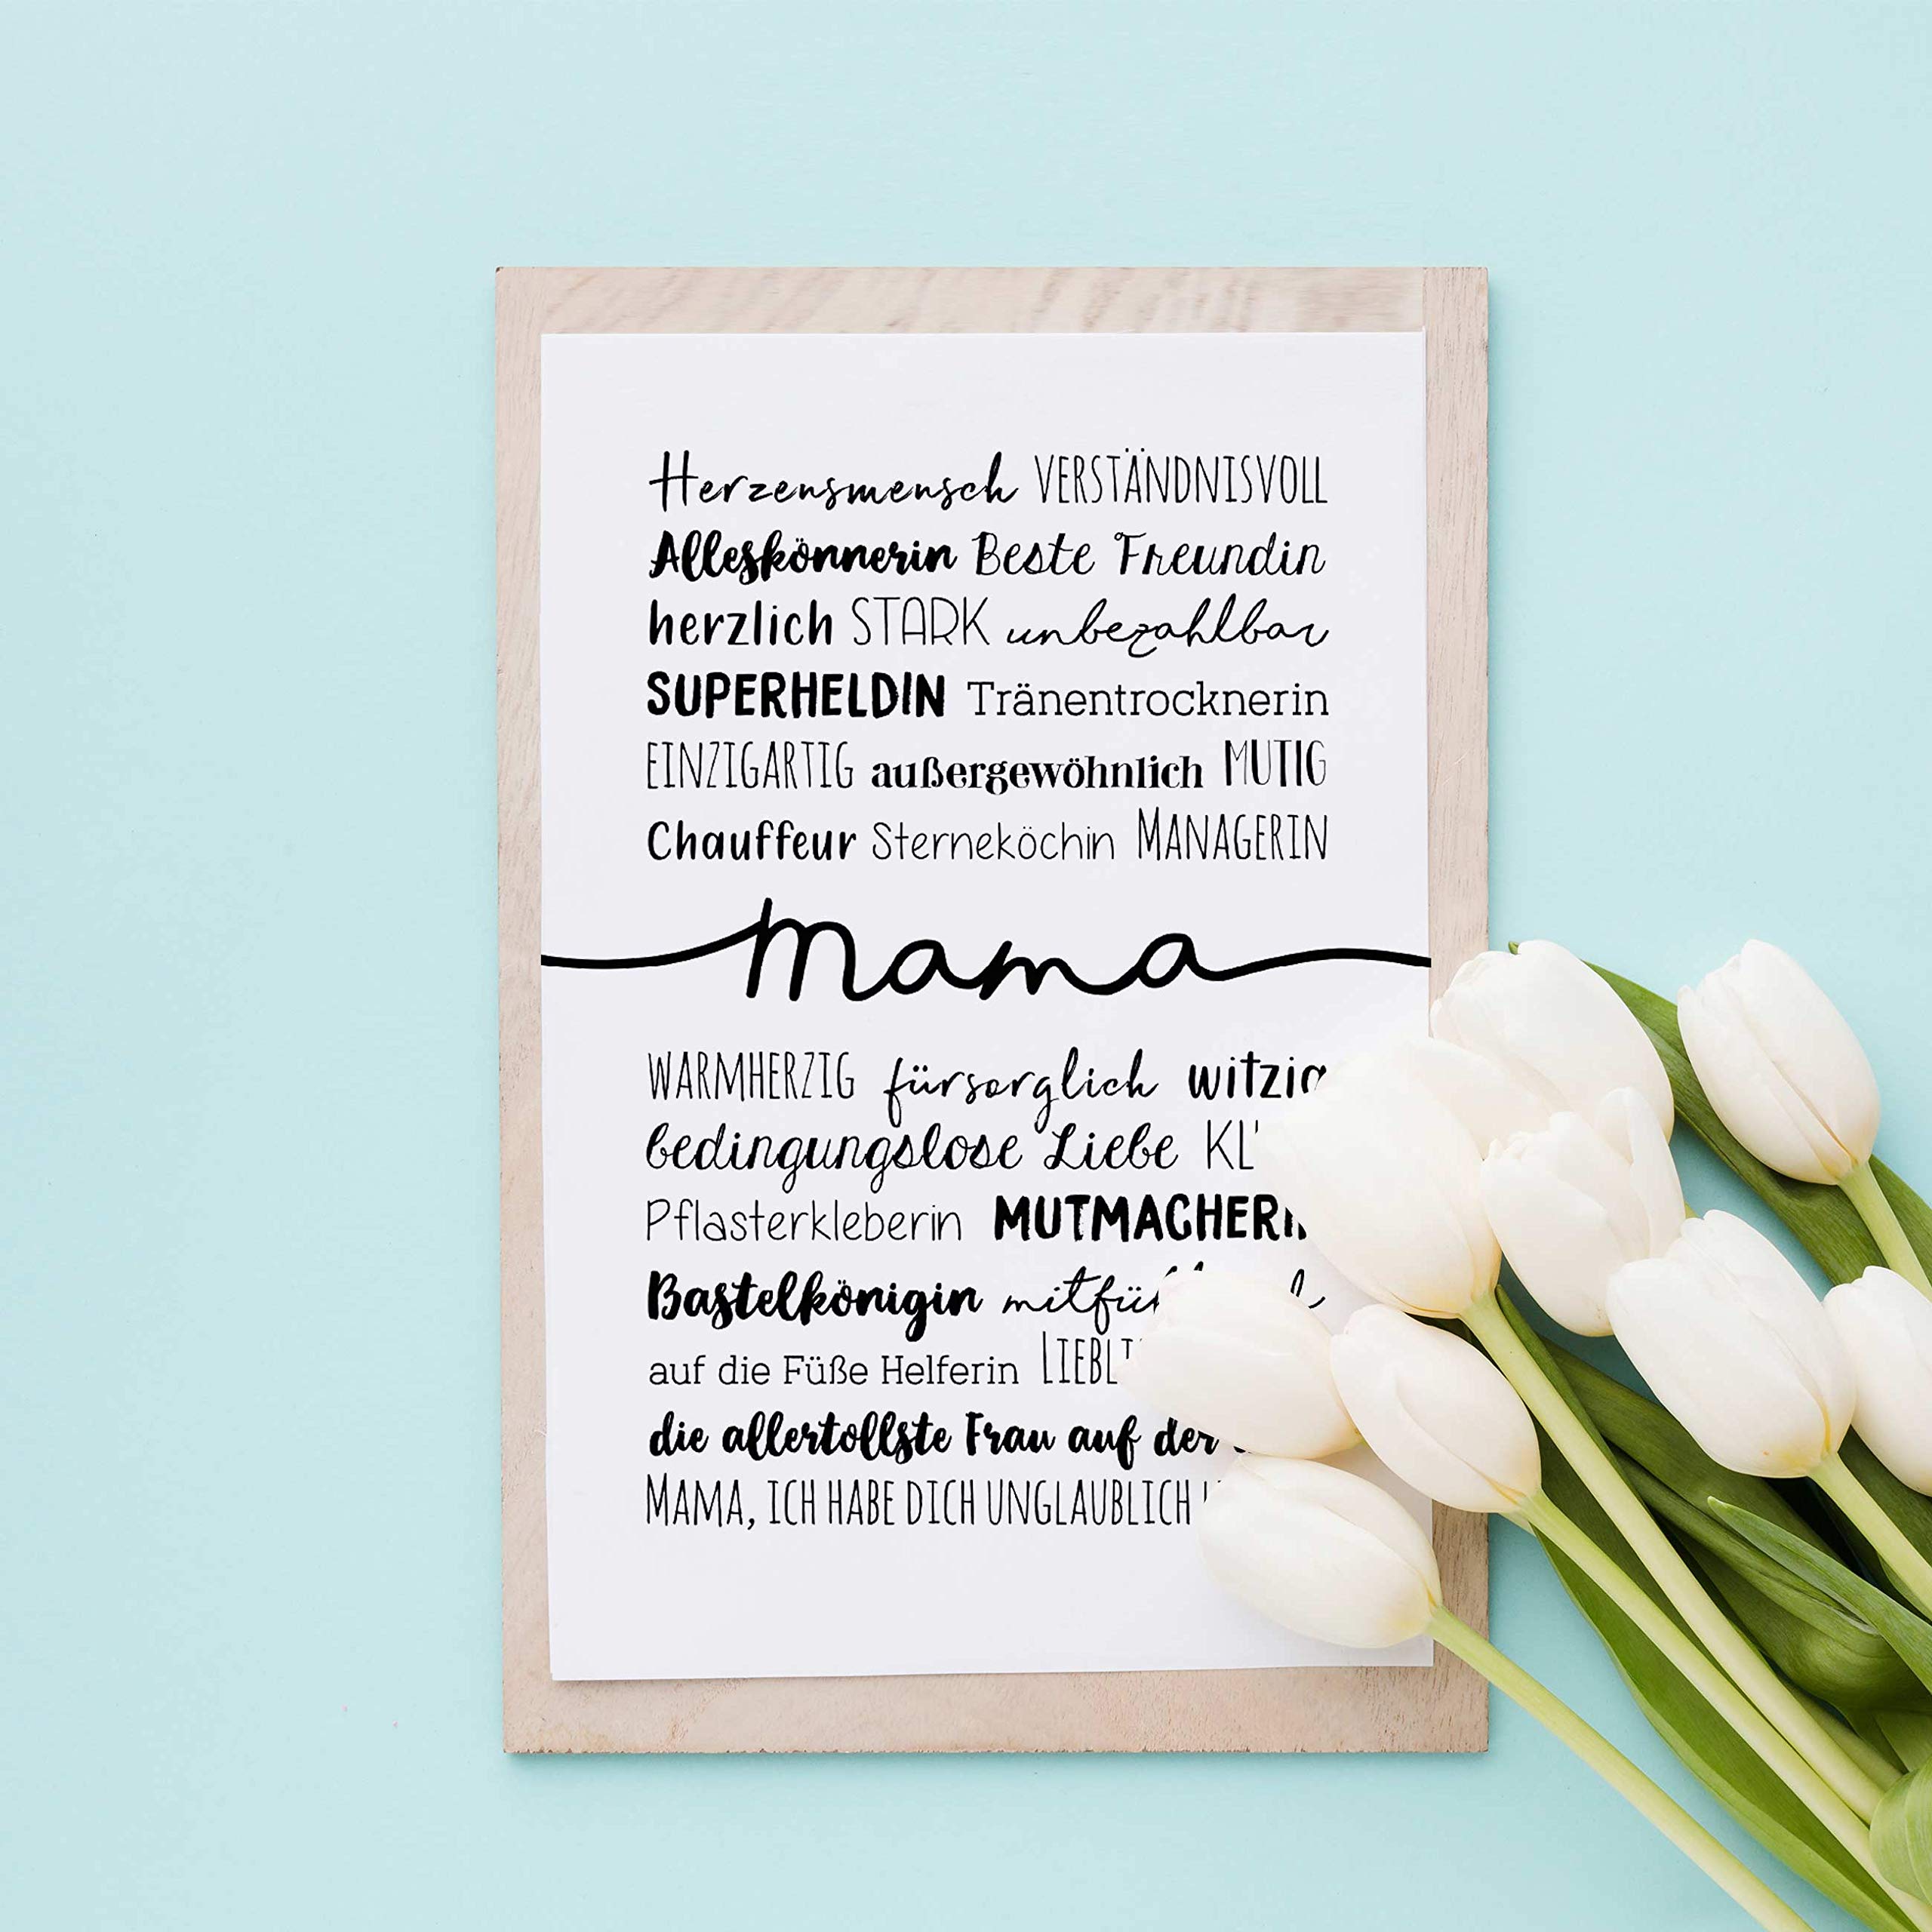 Herzensmensch VERSTÄNDNISVOLL
Alleskönnerin Beste Freundin
herzlich STARK unbezahlbar
SUPERHELDIN Tränentrocknerin
EINZIGARTIG außergewöhnlich MUTIG
Chauffeur Sterneköchin MANAGERIN
Mama
WARMHERZIG fürsorglich witzig
bedingungslose Liebe
Pflasterkleberin MUTMACHERIN
Bastelkönigin
auf die Füße Helferin
die allertollste Frau auf der
MAMA, ICH HABE DICH UNGLAUBLICH